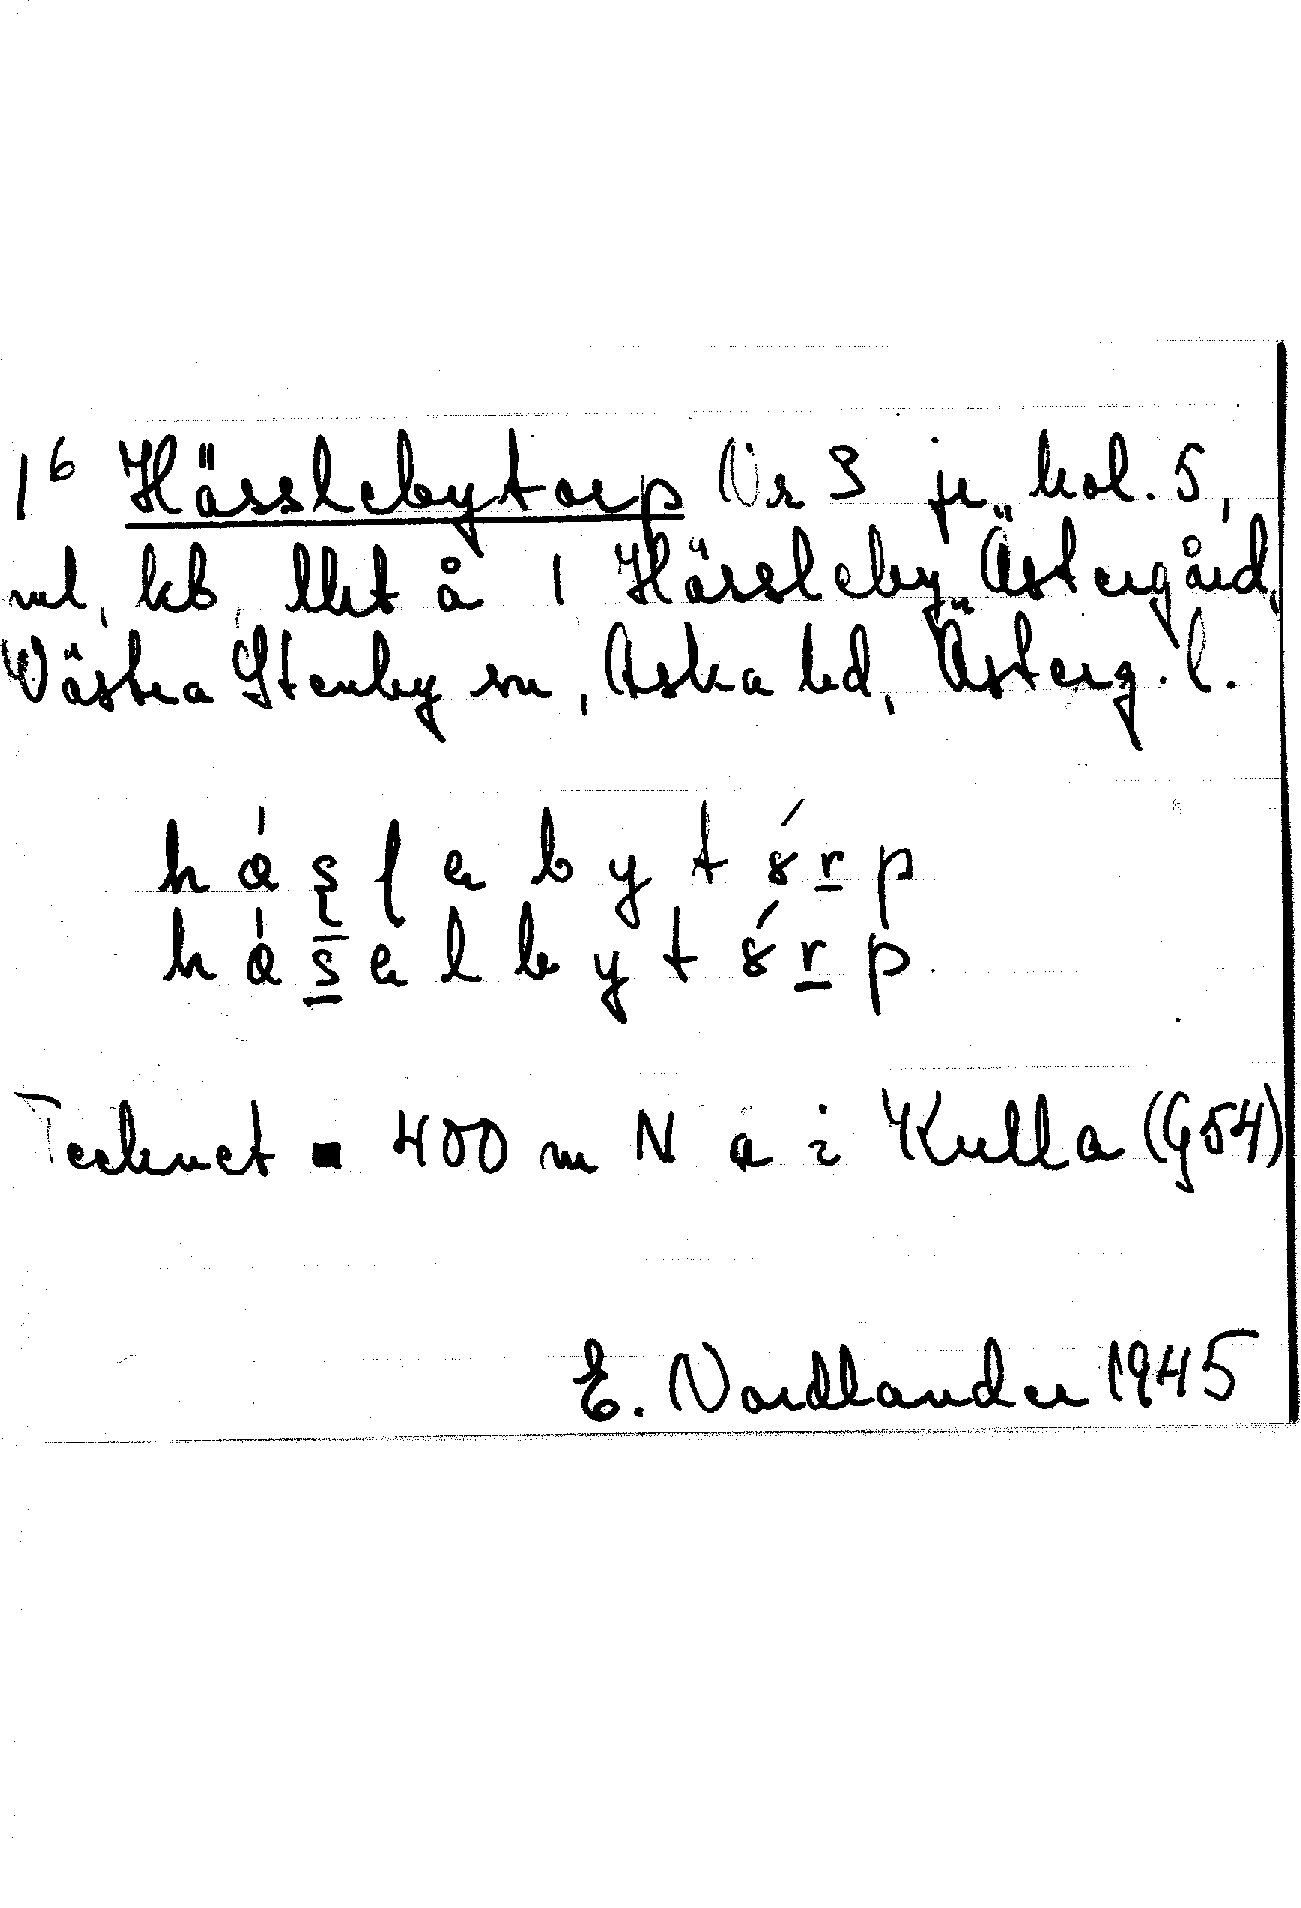 1⁶ Hässlebytorp Nr 3 jr, kol. 5,
ml, kb, llet å 1 Hässleby Östergård,
Västra Stenby sn, Aska hd, Österg. l.
häslebytorp
häselbytorp
Tecknet ■ 400 m N a i Kulla (G54)
E. Nordlander 1945